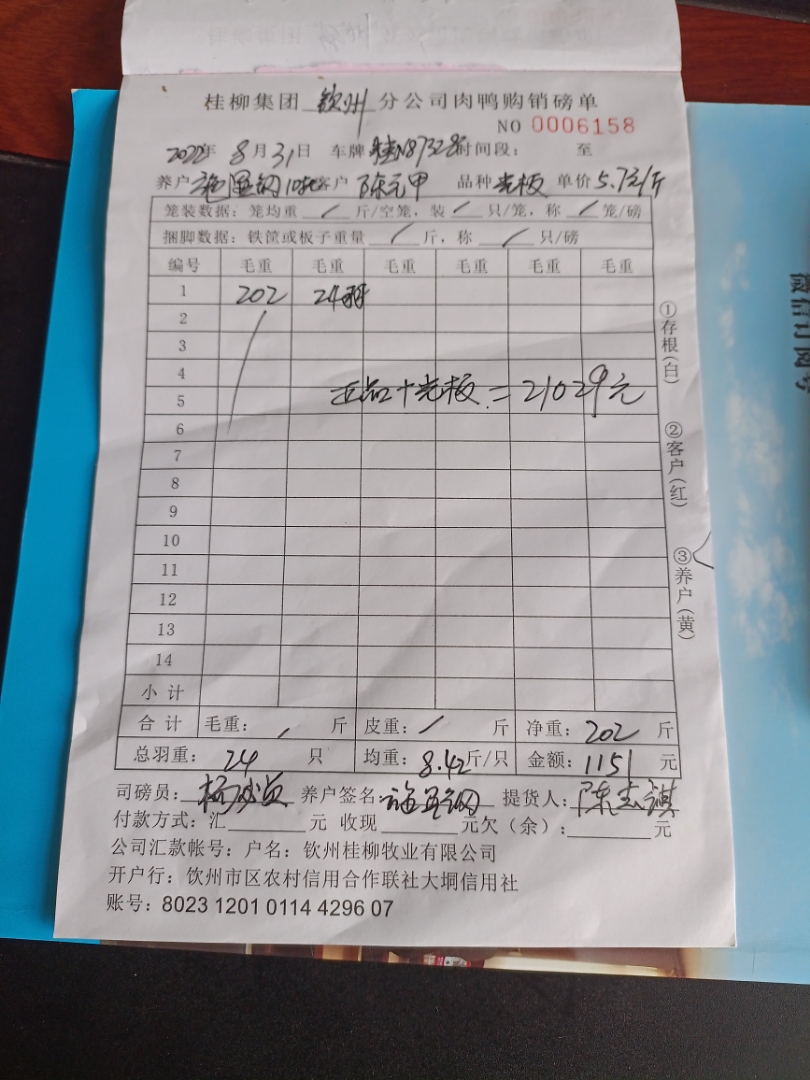 桂柳集团 钦州 分公司肉鸭购销磅单
NO 0006158
2022年 8月31日 车牌 桂N87328 时间段： 至
养户 10批 客户 陈元甲 品种 光板 单价 5.7元/斤
笼装数据：笼均重 / 斤/空笼，装 / 只/笼，称 / 笼/磅
捆脚数据：铁筐或板子重量 / 斤，称 / 只/磅
编号 毛重 毛重 毛重 毛重 毛重 毛重
1 202 24羽
2
3
4
正品+光板=21029元
5
6
7
8
9
10
11
12
13
14
小计
合计 毛重： / 斤 皮重： / 斤 净重：202 斤
总羽重： 24 只 均重：8.42斤/只 金额：1151 元
司磅员： 养户签名： 提货人：
付款方式：汇 元 收现 元欠（余）： 元
公司汇款帐号：户名：钦州桂柳牧业有限公司
开户行：钦州市区农村信用合作联社大垌信用社
账号：8023 1201 0114 4296 07
①存根(白)
②客户(红)
③养户(黄)
微信订阅号